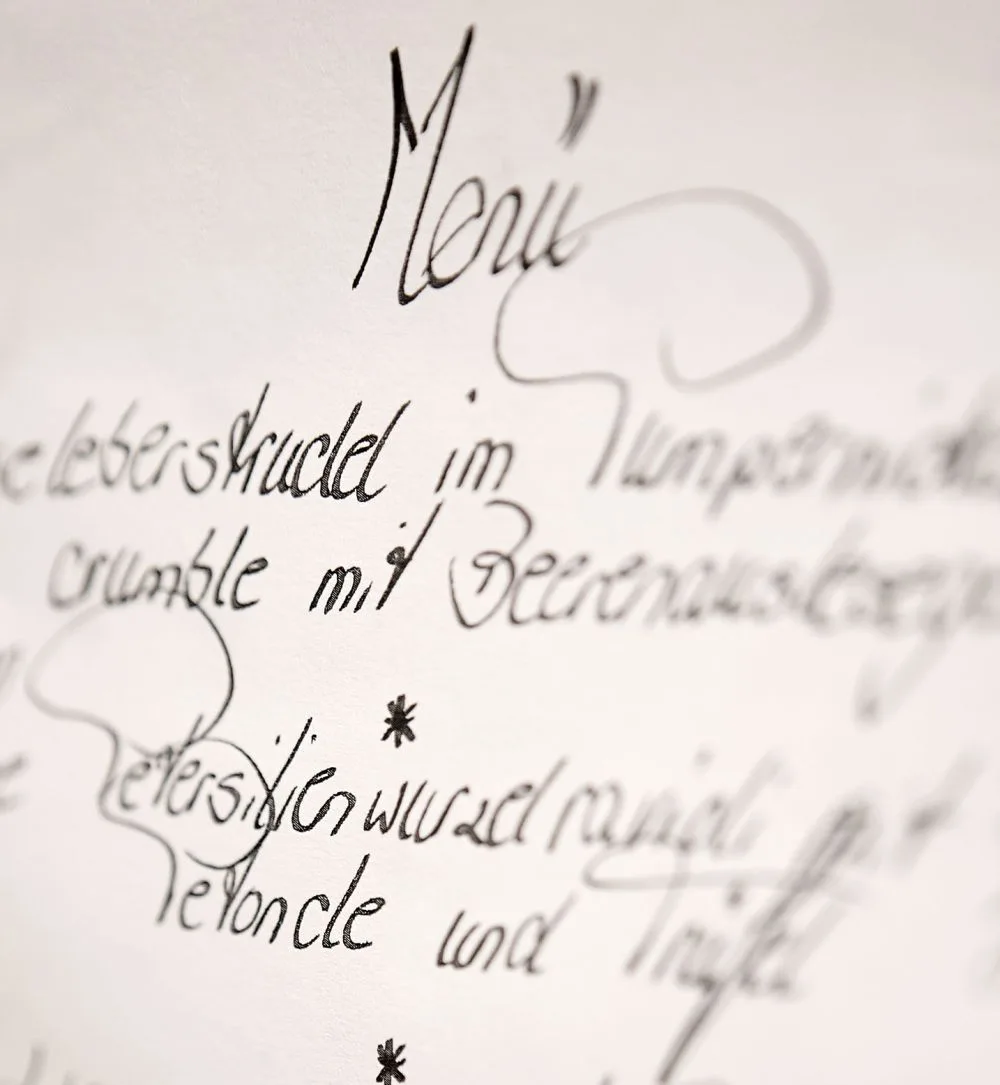 Menü
eleberstrudel im Pumpernickel
crumble mit Beerenauslesegelee
*
Petersilienwurzelravioli mit
Petoncle und Trüffel
*